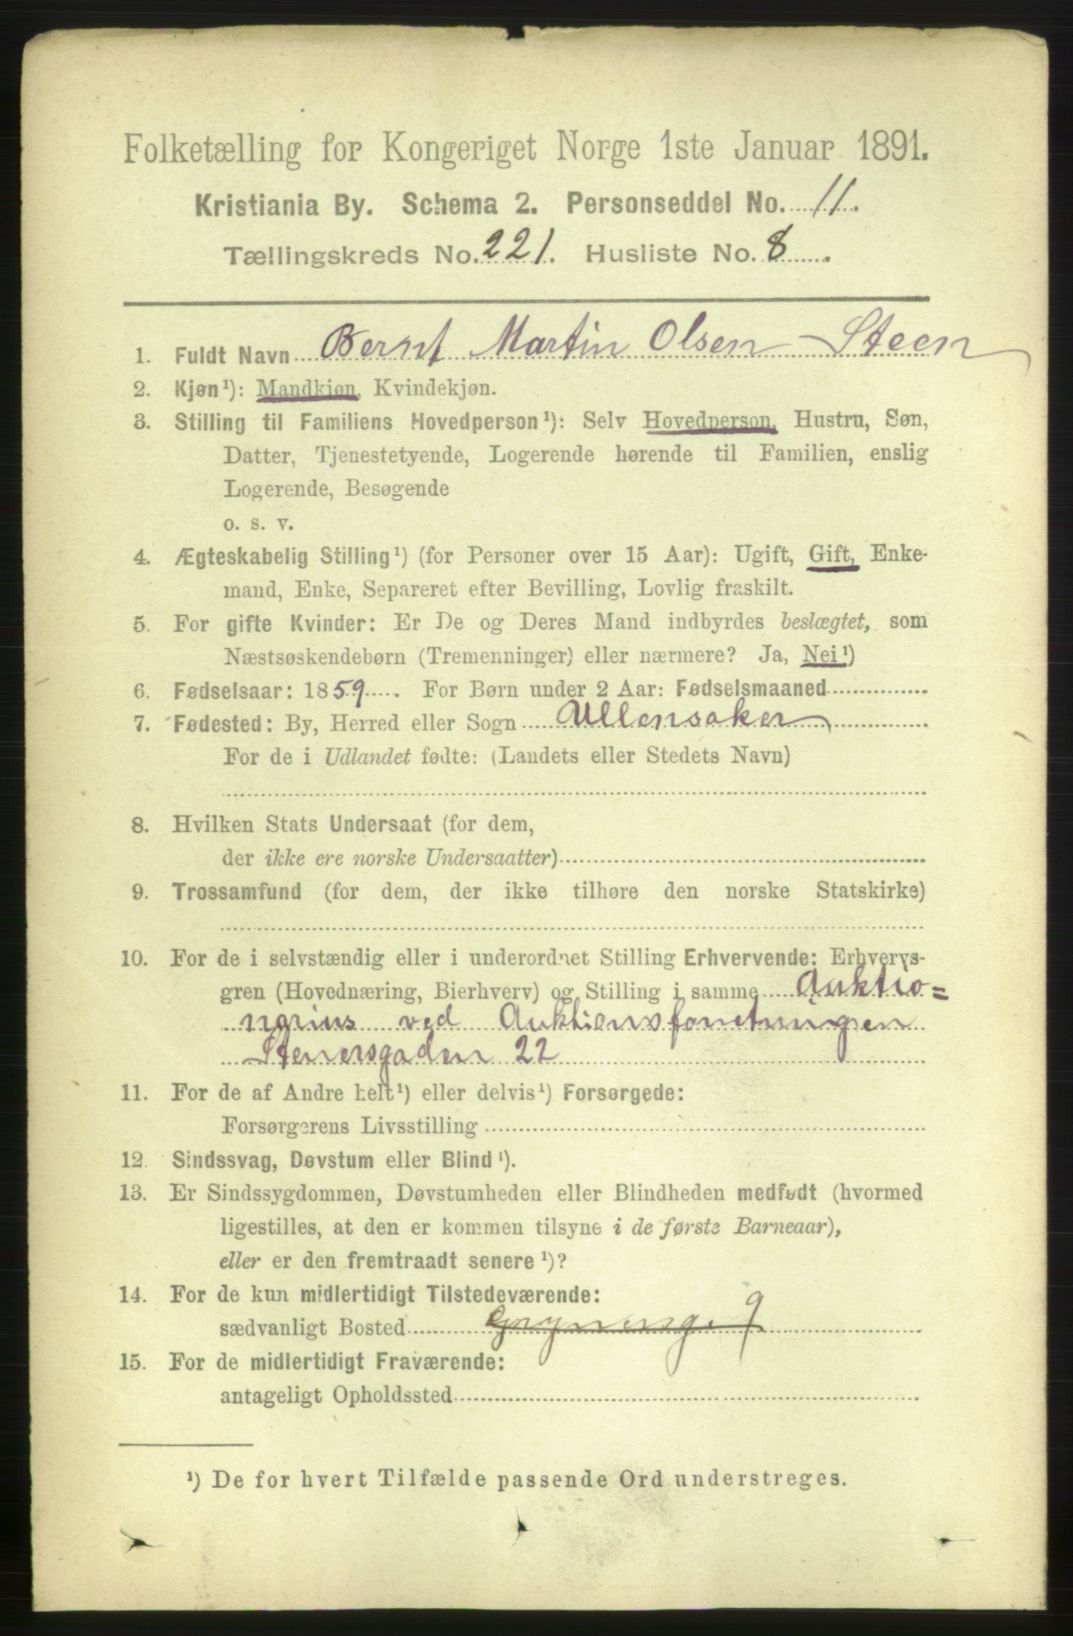 Folketælling for Kongeriget Norge 1ste Januar 1891.
Kristiania By. Schema 2. Personseddel No. 11.
Tællingskreds No. 221. Husliste No. 8.
1. Fuldt Navn Bernt Martin Olsen - Steen
2. Kjøn¹): Mandkjøn, Kvindekjøn.
3. Stilling til Familiens Hovedperson¹): Selv Hovedperson, Hustru, Søn,
Datter, Tjenestetyende, Logerende hørende til Familien, enslig
Logerende, Besøgende
o. s. v.
4. Ægteskabelig Stilling¹) (for Personer over 15 Aar): Ugift, Gift, Enke-
mand, Enke, Separeret efter Bevilling, Lovlig fraskilt.
5. For gifte Kvinder: Er De og Deres Mand indbyrdes beslægtet, som
Næstsøskendebørn (Tremenninger) eller nærmere? Ja, Nei¹)
6. Fødselsaar: 1859. For Børn under 2 Aar: Fødselsmaaned
7. Fødested: By, Herred eller Sogn Ullensaker
For de i Udlandet fødte: (Landets eller Stedets Navn)
8. Hvilken Stats Undersaat (for dem,
der ikke ere norske Undersaatter)
9. Trossamfund (for dem, der ikke tilhøre den norske Statskirke)
10. For de i selvstændig eller i underordnet Stilling Erhvervende: Erhvervs-
gren (Hovednæring, Bierhverv) og Stilling i samme Auktio=
narius ved Auktionsforretningen
Stenersgaden 22
11. For de af Andre helt¹) eller delvis¹) Forsørgede:
Forsørgerens Livsstilling
12. Sindssvag, Døvstum eller Blind¹).
13. Er Sindssygdommen, Døvstumheden eller Blindheden medfødt (hvormed
ligestilles, at den er kommen tilsyne i de første Barneaar),
eller er den fremtraadt senere¹)?
14. For de kun midlertidigt Tilstedeværende:
sædvanligt Bosted 9
15. For de midlertidigt Fraværende:
antageligt Opholdssted
¹) De for hvert Tilfælde passende Ord understreges.